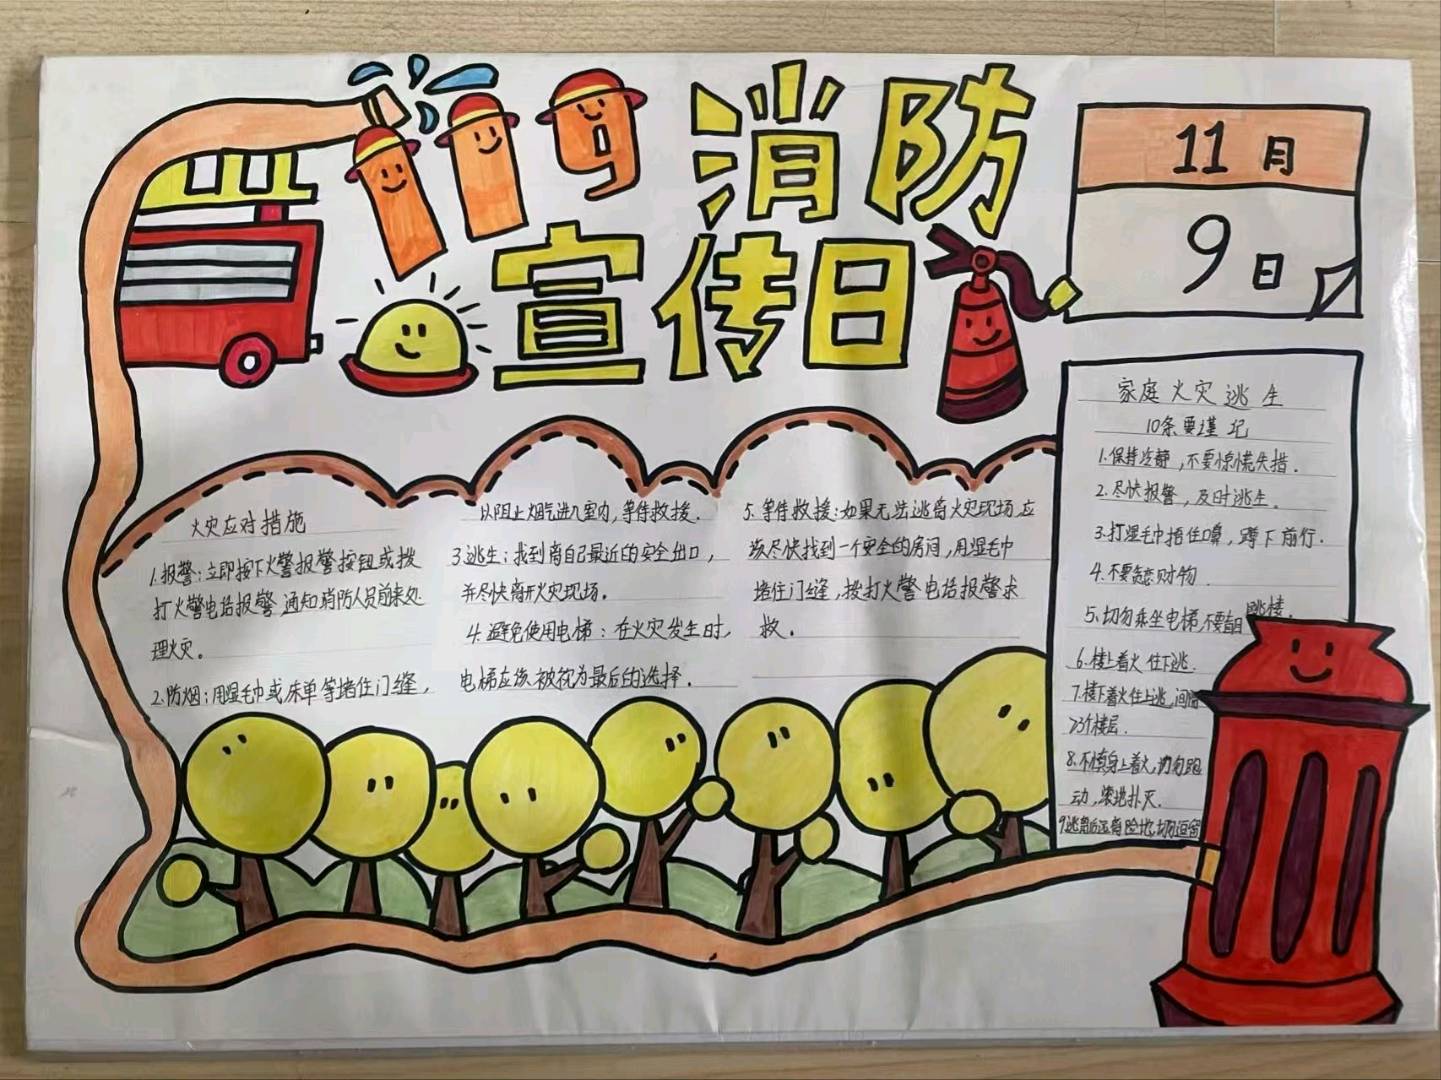 119 消防
宣传日
11月
9日
火灾应对措施
1.报警:立即按下火警报警按钮或拨
打火警电话报警 通知消防人员前来处
理火灾。
2.防烟:用湿毛巾或床单等堵住门缝,
以阻止烟气进入室内,等待救援.
3.逃生:找到离自己最近的安全出口,
并尽快离开火灾现场。
4.避免使用电梯:在火灾发生时,
电梯应该被视为最后的选择.
5.等待救援:如果无法逃离火灾现场,应
该尽快找到一个安全的房间,用湿毛巾
堵住门缝,拨打火警电话报警求
救.
家庭火灾逃生
10条要谨记
1.保持冷静,不要惊慌失措.
2.尽快报警,及时逃生.
3.打湿毛巾捂住口鼻,蹲下前行.
4.不要贪恋财物.
5.切勿乘坐电梯,不要盲目跳楼.
6.楼上着火往下逃.
7.楼下着火往上逃,间隔
>3个楼层.
8.不慎身上着火,切勿跑
动,滚地扑灭.
9逃离后远离险地,切勿逗留